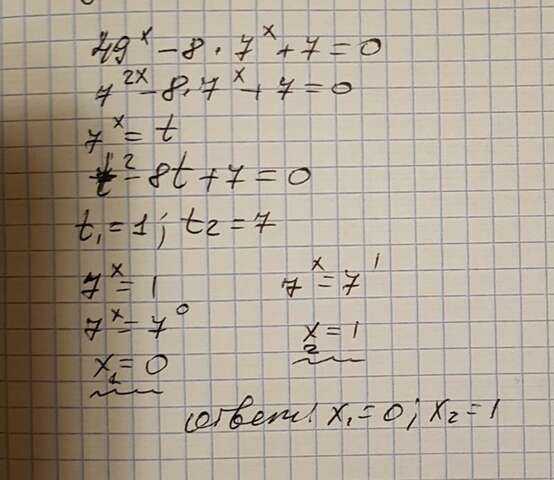 49^x - 8 · 7^x + 7 = 0
7^2x - 8 · 7^x + 7 = 0
7^x = t
t^2 - 8t + 7 = 0
t₁ = 1; t₂ = 7
7^x = 1
7^x = 7^0
x₁ = 0
7^x = 7^1
x₂ = 1
ответ: x₁ = 0; x₂ = 1